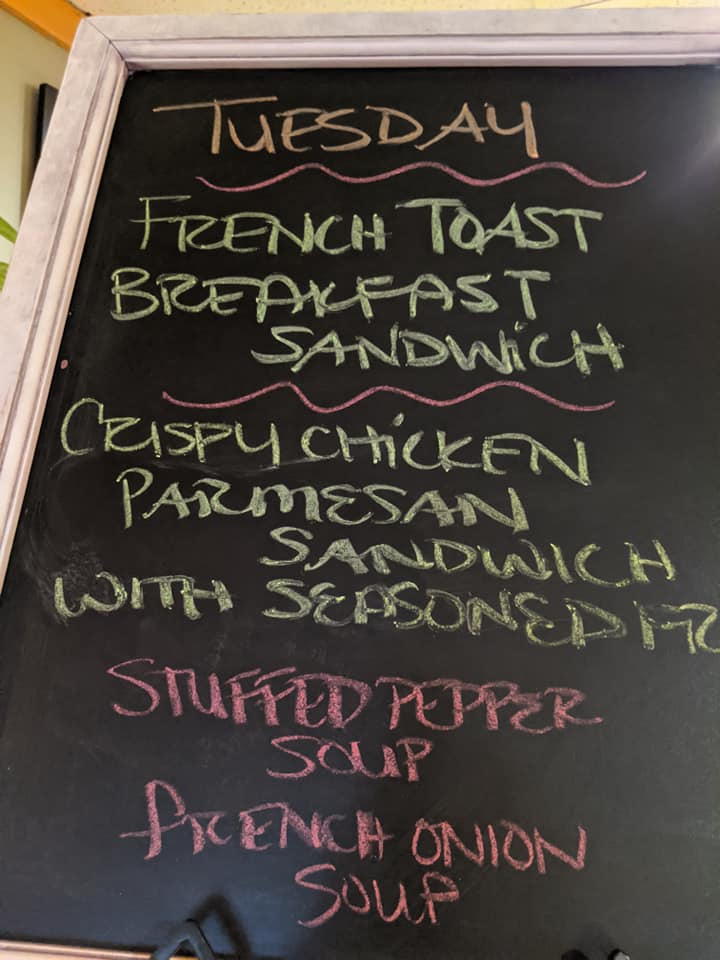 TUESDAY
FRENCH TOAST
BREAKFAST
SANDWICH
CRISPY CHICKEN
PARMESAN
SANDWICH
WITH SEASONED
STUFFED PEPPER
SOUP
FRENCH ONION
SOUP